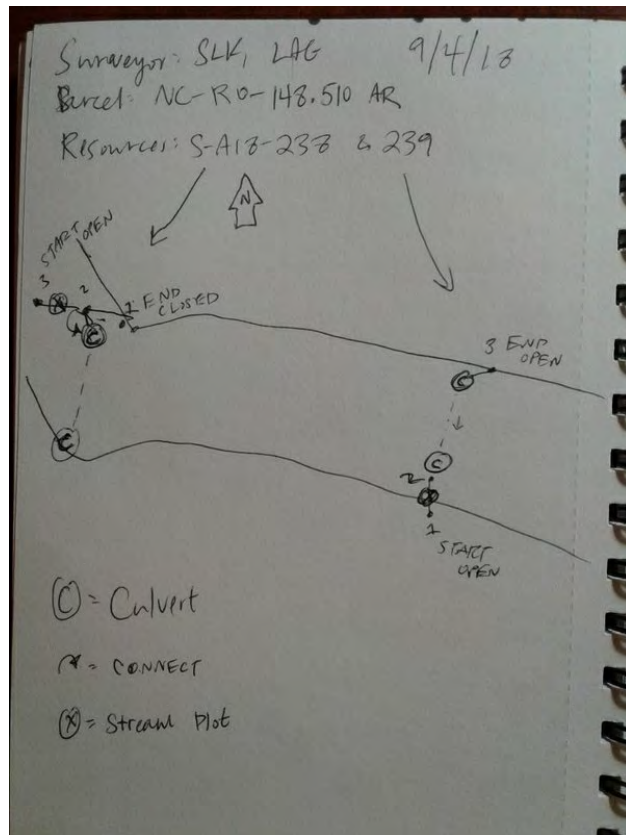 Surveyor: SLK, LAG 9/4/18
Parcel: NC-RO-148.510 AR
Resources: S-A18-238 & 239
N
START OPEN
3
2
1 END
CLOSED
C
3 END
OPEN
C
C
C
2
1
START
OPEN
C = Culvert
= CONNECT
X = Stream Plot